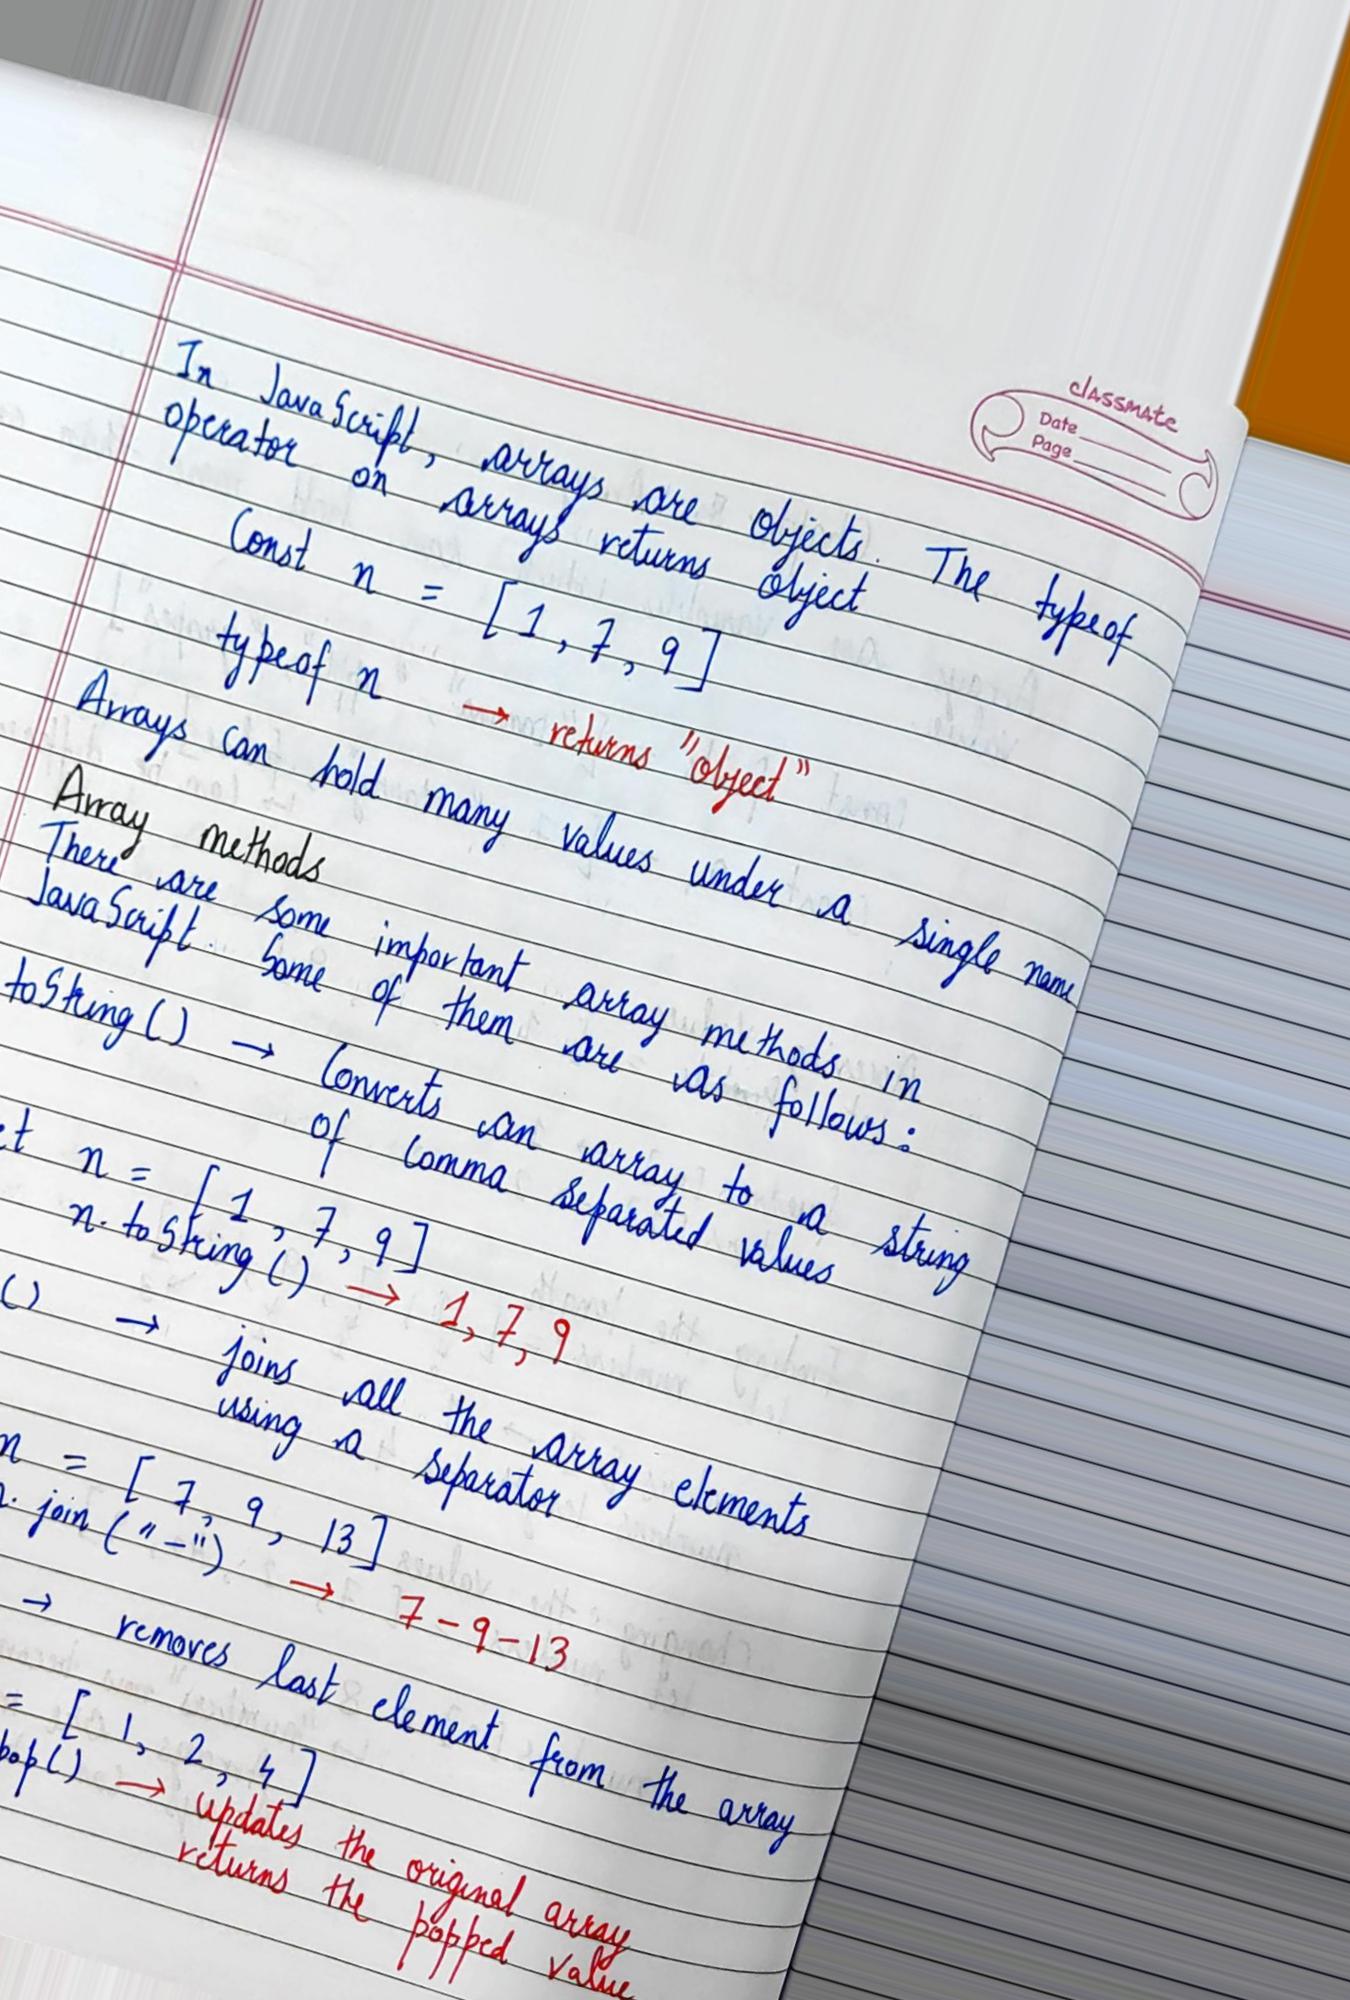 classmate
Date
Page
In JavaScript, arrays are objects. The typeof
operator on arrays returns object
Const n = [1, 7, 9]
typeof n → returns "object"
Arrays can hold many values under a single name
Array methods
There are some important array methods in
JavaScript. Some of them are as follows:
toString() → Converts an array to a string
of comma separated values
n = [1, 7, 9]
n.toString() → 1, 7, 9
() → joins all the array elements
using a separator
n = [7, 9, 13]
n.join("-") → 7-9-13
→ removes last element from the array
= [1, 2, 4]
pop() → updates the original array
returns the popped value